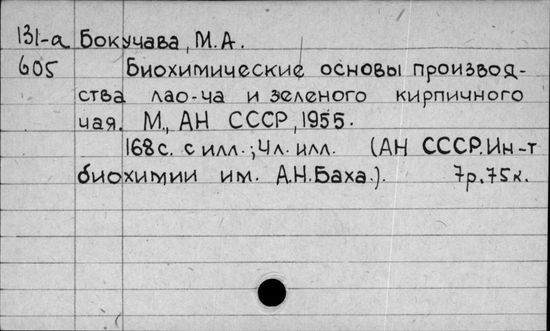 131-а Бокучава, М.А.
605 Биохимические основы производ-
ства лао-ча и зеленого кирпичного
чая. М., АН СССР, 1955.
168с. с илл.; 4л. илл. (АН СССР. Ин-т
биохимии им. А.Н.Баха.). 7р.75к.